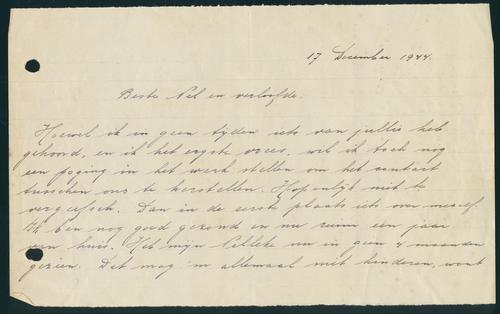 17 December 1944.
Beste Nel en verloofde.
Hoewel ik in geen tijden iets van jullie heb
gehoord, en ik het ergste vrees, wil ik toch nog
een poging in het werk stellen om het contact
trusschen ons te herstellen. Hopenlijk niet te
vergeefsch. Dan in de eerste plaats iets over mezelf
Ik ben nog goed gezond en nu ruim een jaar
van huis. Heb mijn Nelleke nu in geen 4 maanden
gezien. Dat mag 'm allemaal niet hinderen, want